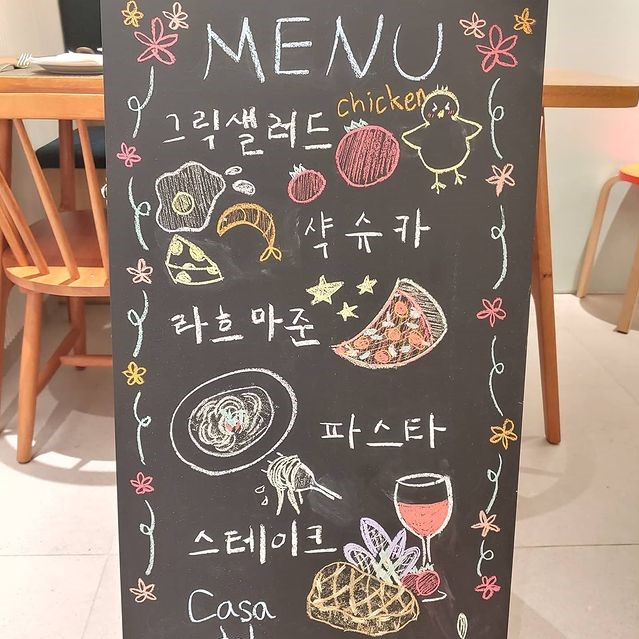 MENU
chicken
그릭샐러드
샥슈카
라흐마준
파스타
스테이크
Casa